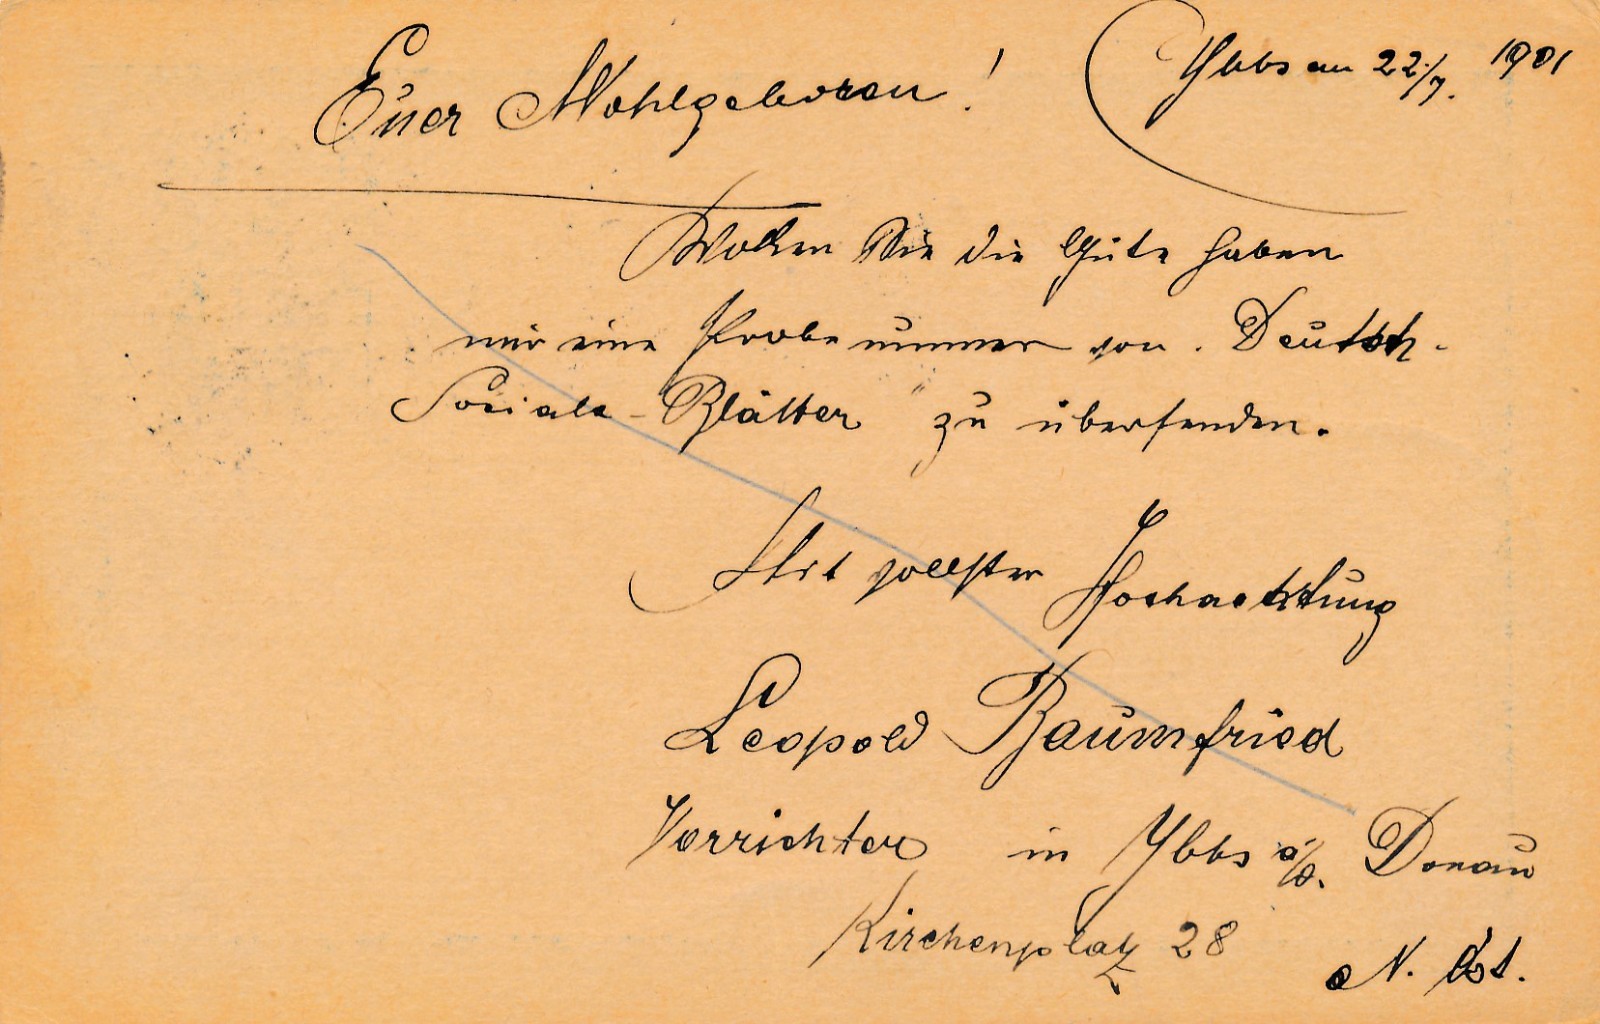 Euer Wohlgeboren!
Ybbs am 22/7. 1901
Wollen Sie die Güte haben
mir eine Probenummer von „Deutsch-
Sociale-Blätter“ zu übersenden.
Mit vollster Hochachtung
Leopold Baumfried
Vorrichter in Ybbs a/d. Donau
Kirchenplatz 28
N. Öst.